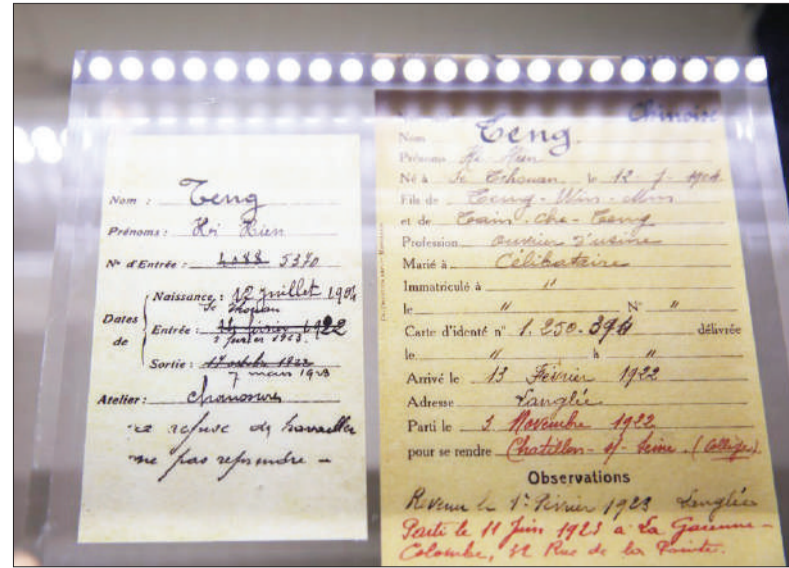 Nom : Teng
Prénoms : Hi Hien
N° d'Entrée : 4088 5370
Dates de
Naissance : 12 juillet 1904
Se Tchouan
Entrée : 14 février 1922
2 février 1923.
Sortie : 17 octobre 1922
7 mars 1923
Atelier : Chaussures
a refusé de travailler
ne pas reprendre -
Chinoise
Nom Teng.
Prénoms Hi Hien
Né à Se Tchouan le 12 - 7 - 1904
Fils de Teng - Win - Min
et de Tain - Che - Teng
Profession ouvrier d'usine
Marié à Célibataire
Immatriculé à "
le " N° "
Carte d'identé n° 1.250.394 délivrée
le " à "
Arrivé le 13 Février 1922
Adresse Langlée
Parti le 3 Novembre 1922
pour se rendre Chatillon - s/ - Seine. (Collège).
Observations
Revenu le 1er Février 1923 Langlée
Parti le 11 Juin 1923 a La Garenne-
Colombe, 32 Rue de la Pointe.